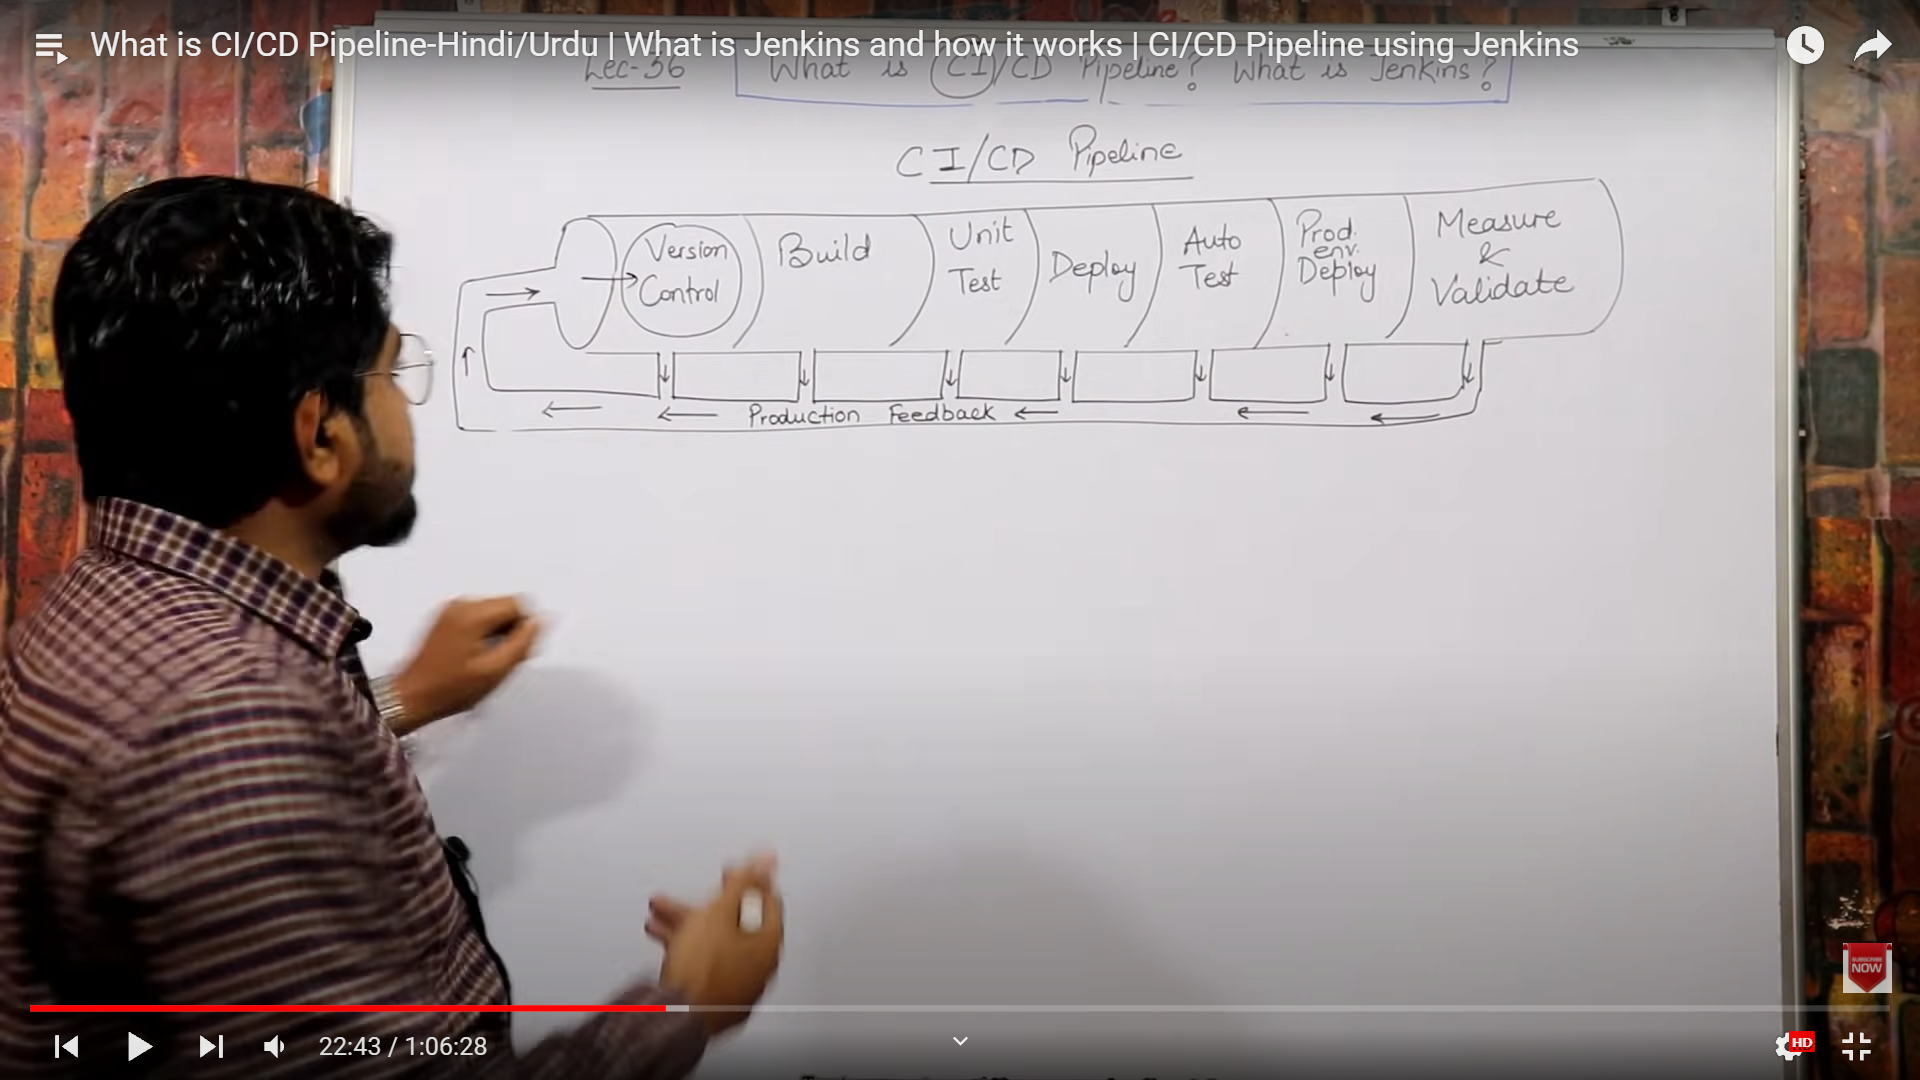 What is CI/CD Pipeline-Hindi/Urdu | What is Jenkins and how it works | CI/CD Pipeline using Jenkins
Lec-56 What is CI/CD Pipeline? What is Jenkins?
CI/CD Pipeline
Version Control
Build
Unit Test
Deploy
Auto Test
Prod. env. Deploy
Measure & Validate
Production Feedback
SUBSCRIBE
NOW
22:43 / 1:06:28
HD